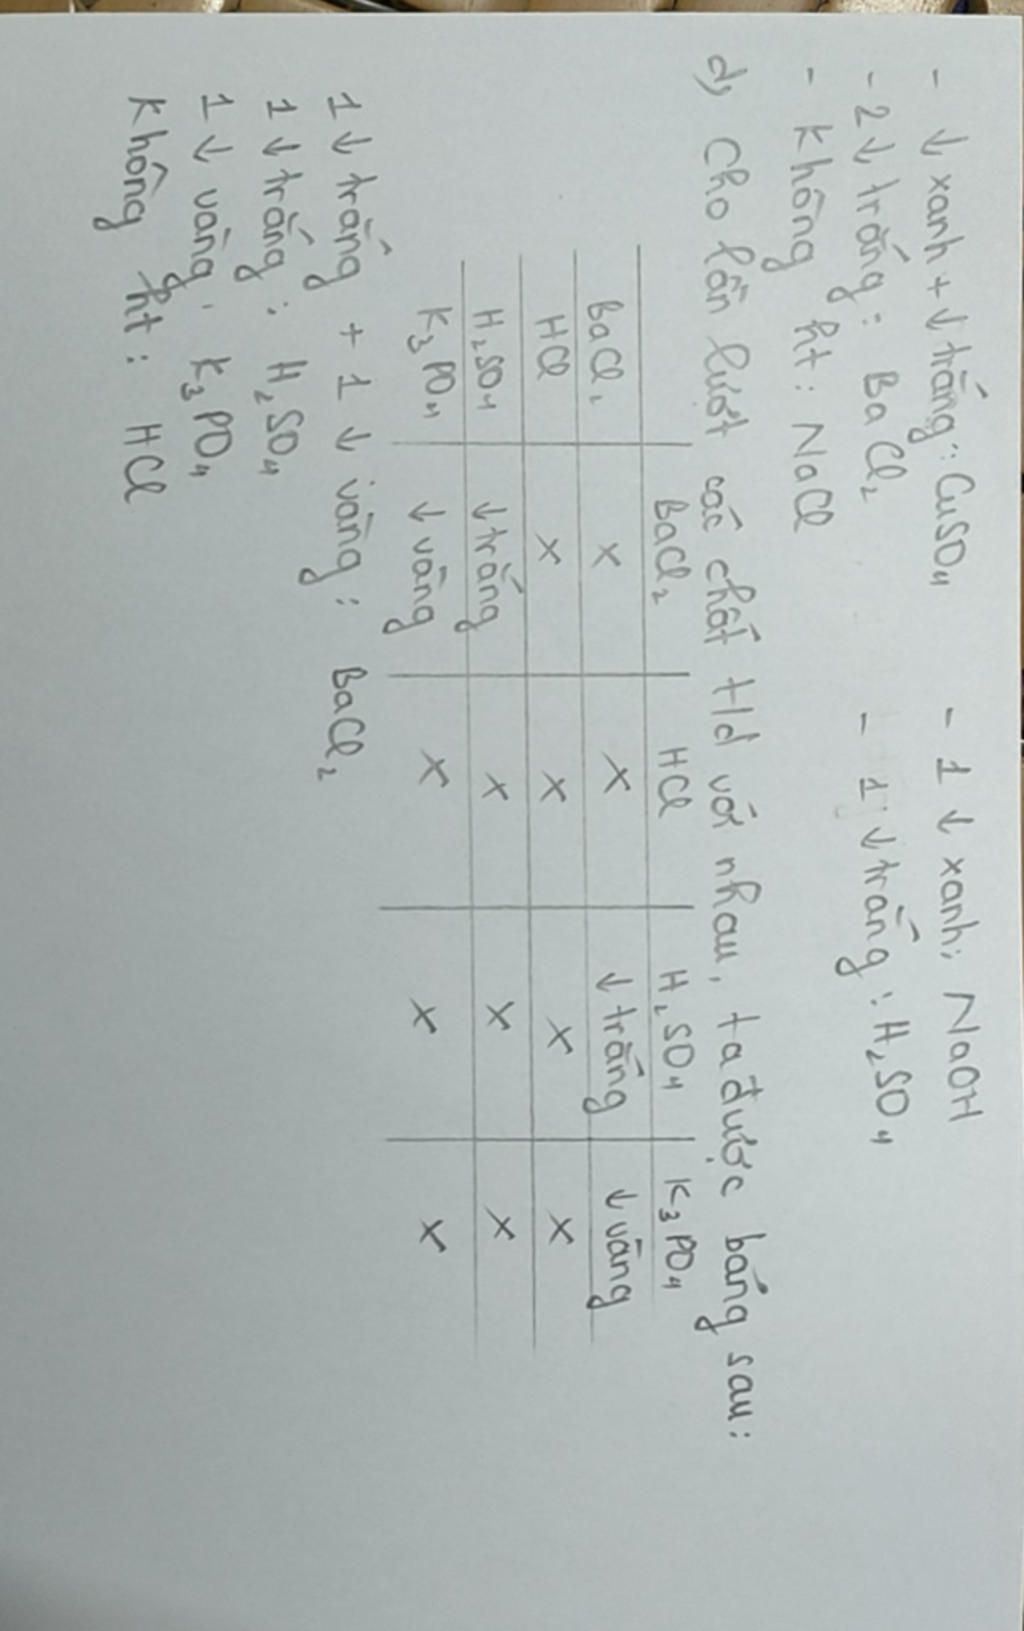 - ↓ xanh + ↓ trắng: CuSO4 - 1 ↓ xanh: NaOH
- 2 ↓ trắng: BaCl2 - 1 ↓ trắng: H2SO4
- Không ht: NaCl
d) Cho lần lượt các chất t/d với nhau, ta được bảng sau:
BaCl2 HCl H2SO4 K3PO4
BaCl2 x x ↓ trắng ↓ vàng
HCl x x x x
H2SO4 ↓ trắng x x x
K3PO4 ↓ vàng x x x
1 ↓ trắng + 1 ↓ vàng: BaCl2
1 ↓ trắng: H2SO4
1 ↓ vàng: K3PO4
Không ht: HCl